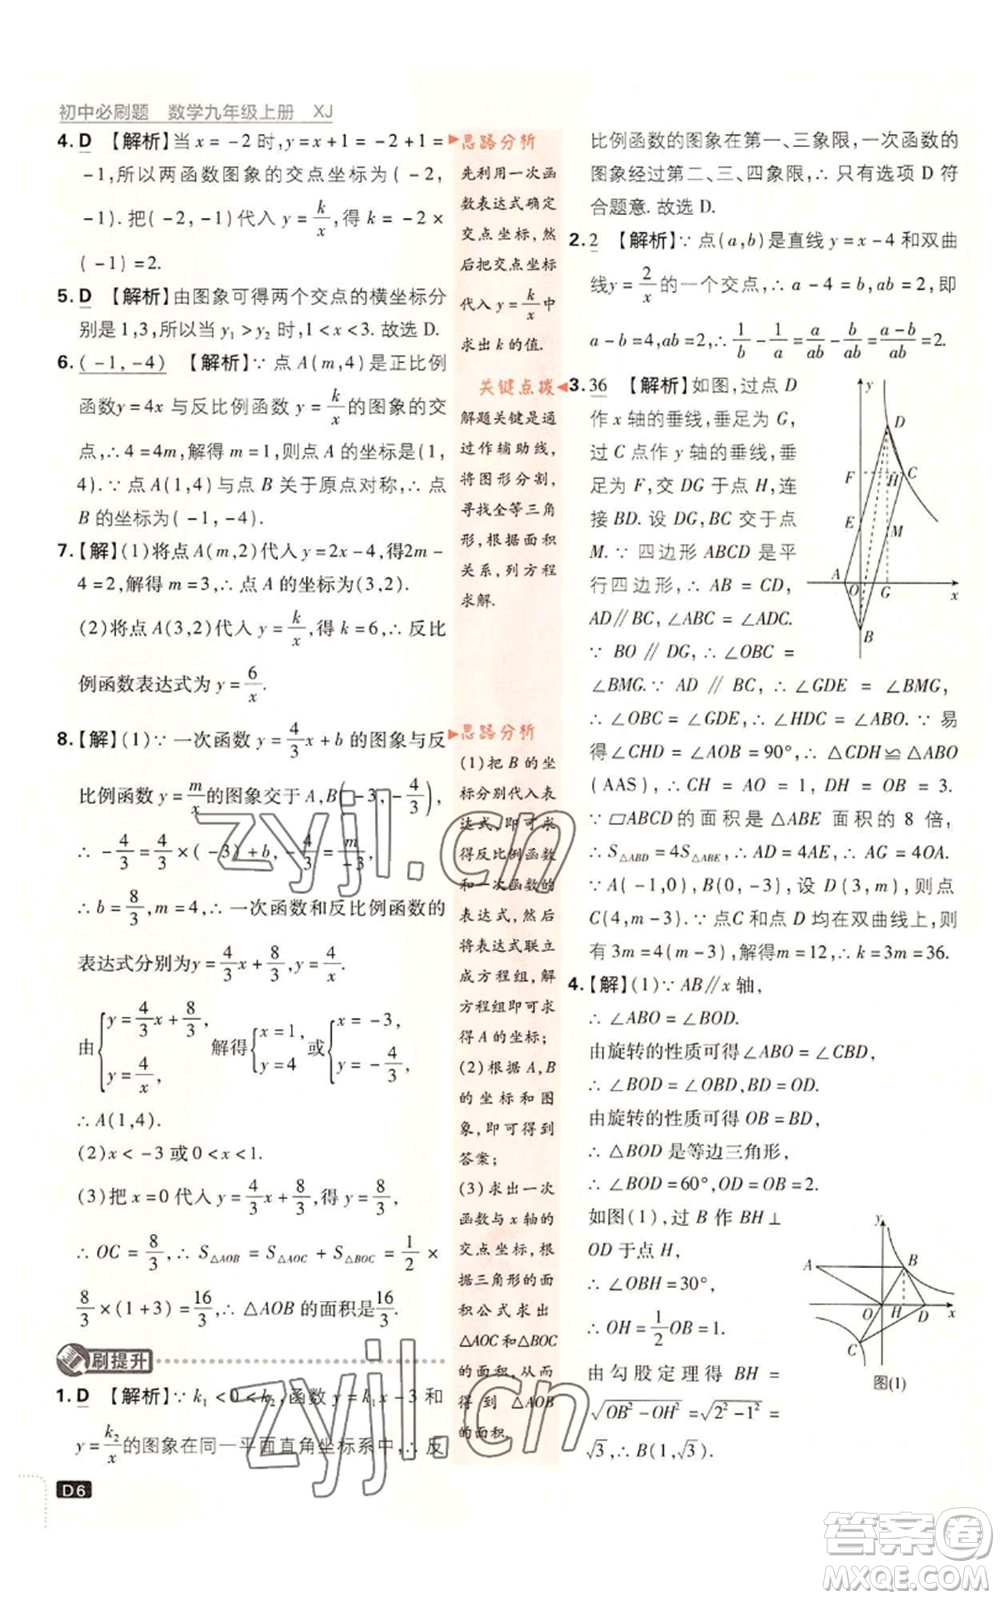 初中必刷题 数学九年级上册 XJ
4. D 【解析】当 x = -2 时, y = x + 1 = -2 + 1 =
-1,所以两函数图象的交点坐标为(-2,
-1). 把(-2, -1)代入 y = k/x, 得 k = -2 ×
(-1) = 2.
5. D 【解析】由图象可得两个交点的横坐标分
别是1,3,所以当 y₁ > y₂ 时,1 < x < 3. 故选 D.
6. (-1, -4) 【解析】∵ 点 A(m,4)是正比例
函数y = 4x 与反比例函数 y = k/x 的图象的交
点,∴ 4 = 4m,解得 m = 1,∴ 点 A 的坐标为(1,
4). ∵ 点 A(1,4)与点 B 关于原点对称,∴ 点
B 的坐标为(-1, -4).
7. 【解】(1)将点A(m,2)代入 y = 2x - 4,得2m -
4 = 2,解得 m = 3,∴ 点 A 的坐标为(3,2).
(2)将点 A(3,2)代入 y = k/x, 得 k = 6,∴ 反比
例函数表达式为 y = 6/x.
8. 【解】(1)∵ 一次函数 y = 4/3 x + b 的图象与反
比例函数 y = m/x 的图象交于 A,B(-3, -4/3),
∴ -4/3 = 4/3 × (-3) + b, -4/3 = m/-3,
∴ b = 8/3, m = 4,∴ 一次函数和反比例函数的
表达式分别为 y = 4/3 x + 8/3, y = 4/x.
由 { y = 4/3 x + 8/3, y = 4/x, 解得 { x = 1, y = 4 或 { x = -3, y = -4/3.
∴ A(1,4).
(2)x < -3 或 0 < x < 1.
(3)把 x = 0 代入 y = 4/3 x + 8/3, 得 y = 8/3,
∴ OC = 8/3, ∴ S△AOB = S△AOC + S△BOC = 1/2 ×
8/3 × (1 + 3) = 16/3, ∴ △AOB 的面积是 16/3.
刷提升
1. D 【解析】∵ k₁ < 0 < k₂, 函数 y = k₁x - 3 和
y = k₂/x 的图象在同一平面直角坐标系中,∴ 反
D6
思路分析
先利用一次函
数表达式确定
交点坐标,然
后把交点坐标
代入 y = k/x 中
求出 k 的值.
关键点拨
解题关键是通
过作辅助线,
将图形分割,
寻找全等三角
形,根据面积
关系,列方程
求解.
思路分析
(1)把 B 的坐
标分别代入表
达式,即可求
得反比例函数
和一次函数的
表达式,然后
将表达式联立
成方程组,解
方程组即可求
得 A 的坐标;
(2)根据 A,B
的坐标和图
象,即可得到
答案;
(3)求出一次
函数与 x 轴的
交点坐标,根
据三角形的面
积公式求出
△AOC 和△BOC
的面积,
得到△AOB
的面积.
比例函数的图象在第一、三象限,一次函数的
图象经过第二、三、四象限,∴ 只有选项 D 符
合题意. 故选 D.
2. 2 【解析】∵ 点(a,b)是直线 y = x - 4 和双曲
线y = 2/x 的一个交点,∴ a - 4 = b,ab = 2,即
a - b = 4,∴ 1/b - 1/a = a/ab - b/ab = a-b/ab = 4/2 = 2.
3. 36 【解析】如图,过点 D
作 x 轴的垂线,垂足为 G,
过 C 点作 y 轴的垂线,垂
足为 F,交 DG 于点 H,连
接 BD. 设 DG,BC 交于点
M. ∵ 四边形 ABCD 是平
行四边形,∴ AB = CD,
AD∥BC,∠ABC = ∠ADC.
∵ BO∥DG,∴ ∠OBC =
∠BMG. ∵ AD∥BC,∴ ∠GDE = ∠BMG,
∴ ∠OBC = ∠GDE,∴ ∠HDC = ∠ABO. ∵ 易
得∠CHD = ∠AOB = 90°,∴ △CHD≌△ABO
(AAS),∴ CH = AO = 1, DH = OB = 3.
∵ ▱ABCD 的面积是△ABE 面积的 8 倍,
∴ S△ABD = 4S△ABE,∴ AD = 4AE,∴ AG = 4OA.
∵ A(-1,0),B(0, -3),设 D(3,m),则点
C(4,m - 3). ∵ 点C 和点 D 均在双曲线上,则
有 3m = 4(m - 3),解得m = 12,∴ k = 3m = 36.
y
D
F
H
C
E
M
A
O
G
x
B
4. 【解】(1)∵ AB∥x 轴,
∴ ∠ABO = ∠BOD.
由旋转的性质可得∠ABO = ∠CBD,
∴ ∠BOD = ∠OBD,∴ BD = OD.
由旋转的性质可得 OB = BD,
∴ △BOD 是等边三角形,
∴ ∠BOD = 60°,OB = 2.
如图(1),过 B 作 BH ⊥
OD 于点 H,
∴ ∠OBH = 30°,
∴ OH = 1/2 OB = 1.
由勾股定理得 BH =
√OB² - OH² = √2² - 1² =
√3,∴ B(1,√3).
y
A
B
O
H
D
x
C
图(1)
zyjl.cn
zyjl.cn
答案圈
MXQE.COM